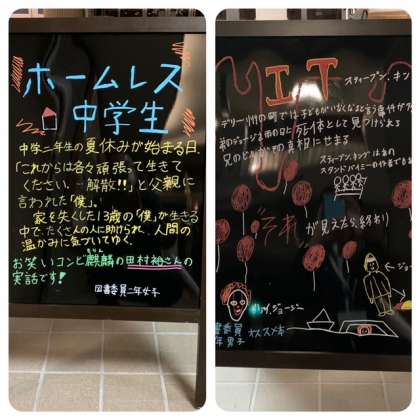 ホームレス
中学生
中学二年生の夏休みが始まる日、
「これからは各々頑張って生きて
ください。…解散!!」と父親に
言われた「僕」。
家を失くした13歳の「僕」が生きる
中で、たくさんの人に助けられ、人間の
温かみに気づいてゆく。
お笑いコンビ麒麟の田村裕さんの
きりん
実話です!
図書委員二年女子
IT
スティーブン・キング
デリーの町では子どもがいなくなると言う事件が
弟のジョージは雨の日に死体として見つけられる
兄のビルが
真相にせまる
スティーブン・キングはあの
スタンドバイミーの作者でもある
"それ"が見えたら、終わり
ジョージー
図書委員 オススメ本
年男子